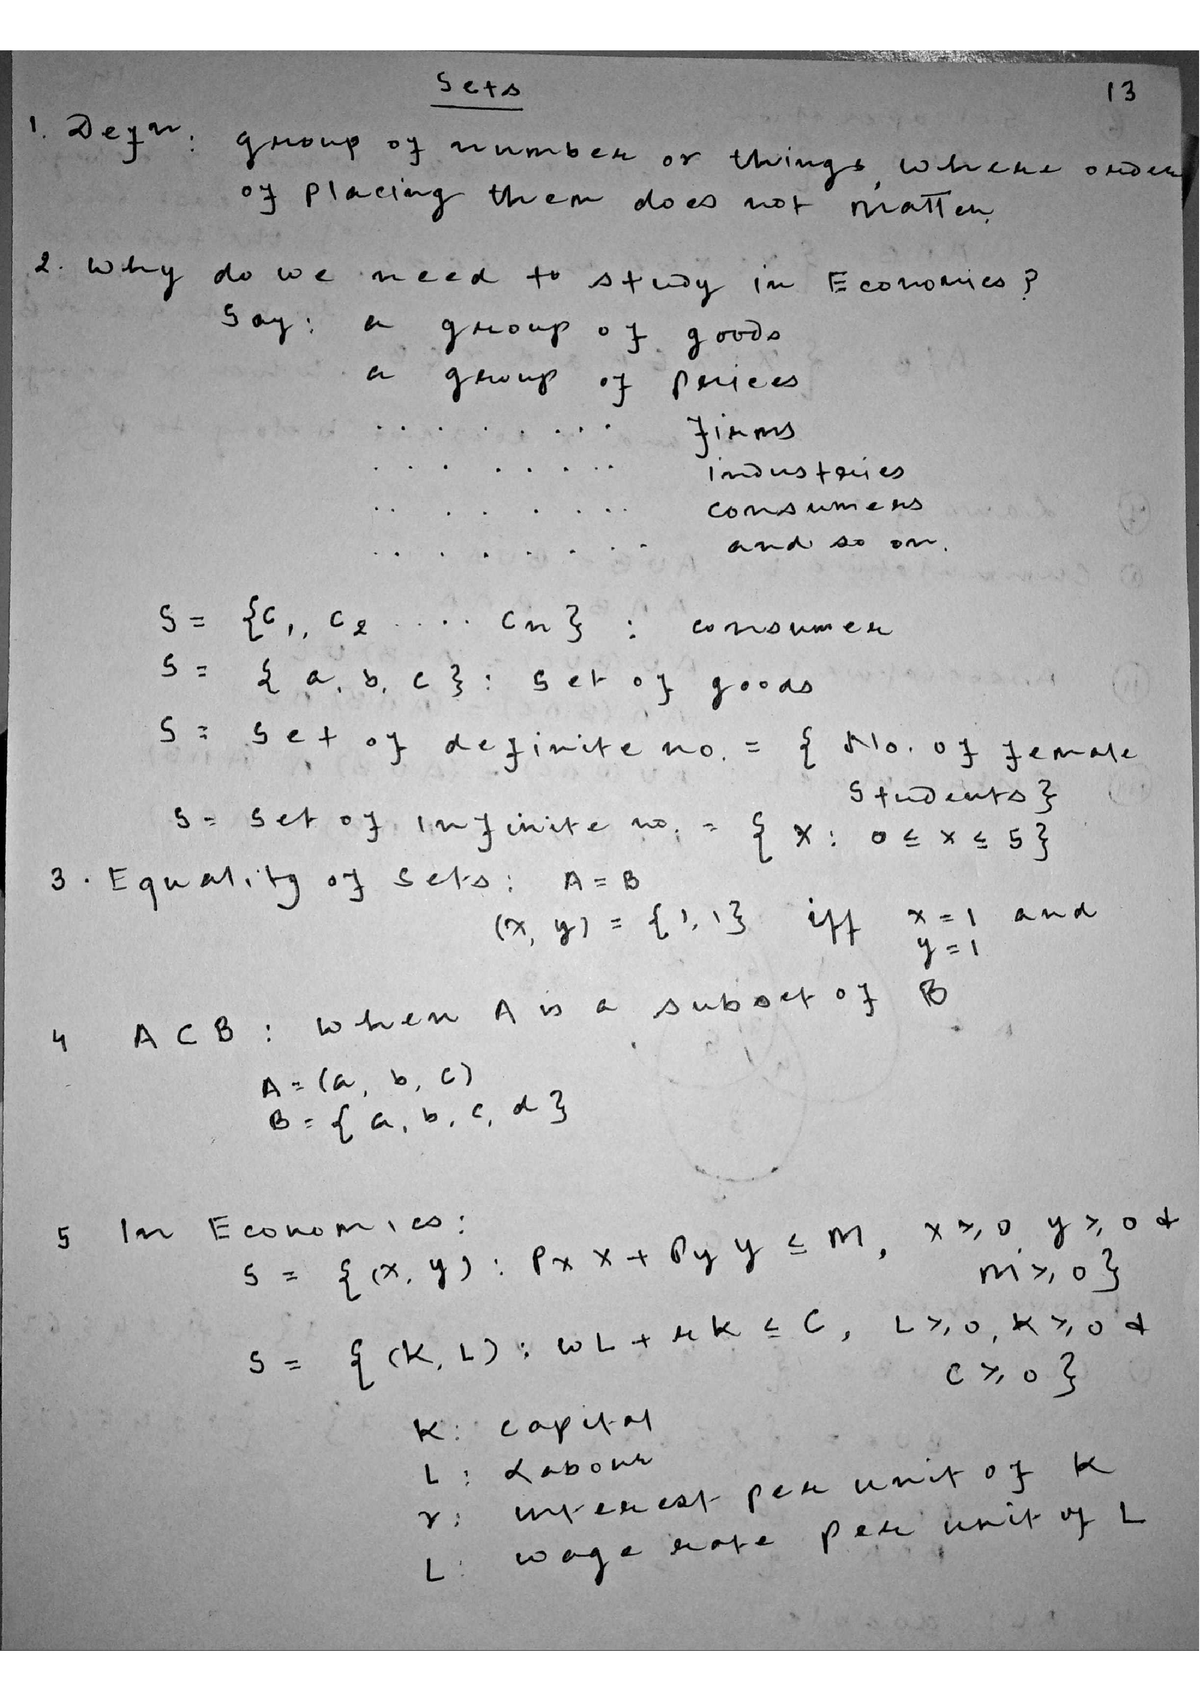 Sets
13
1. Defn: group of number or things, where order
of placing them does not matter.
2. Why do we need to study in Economics?
Say: a group of goods
a group of prices
. . . . . . . . . firms
. . . . . . . . industries
. . . . . . . . consumers
. . . . . . . . and so on.
S = {C₁, C₂ .... Cn} : consumer
S = {a, b, c} : set of goods
S = Set of definite no. = { No. of female
Students}
S = Set of Infinite no. = { x : 0 ≤ x ≤ 5}
3. Equality of Sets: A = B
(x, y) = {1, 1} iff x = 1 and
y = 1
4 A ⊂ B : When A is a subset of B
A = (a, b, c)
B = {a, b, c, d}
5 In Economics:
S = {(x, y) : Px x + Py y ≤ M, x ≥ 0, y ≥ 0 &
M ≥ 0}
S = {(K, L) : wL + rK ≤ C, L ≥ 0, K ≥ 0 &
C ≥ 0}
K: capital
L: Labour
r: interest per unit of K
L: wage rate per unit of L